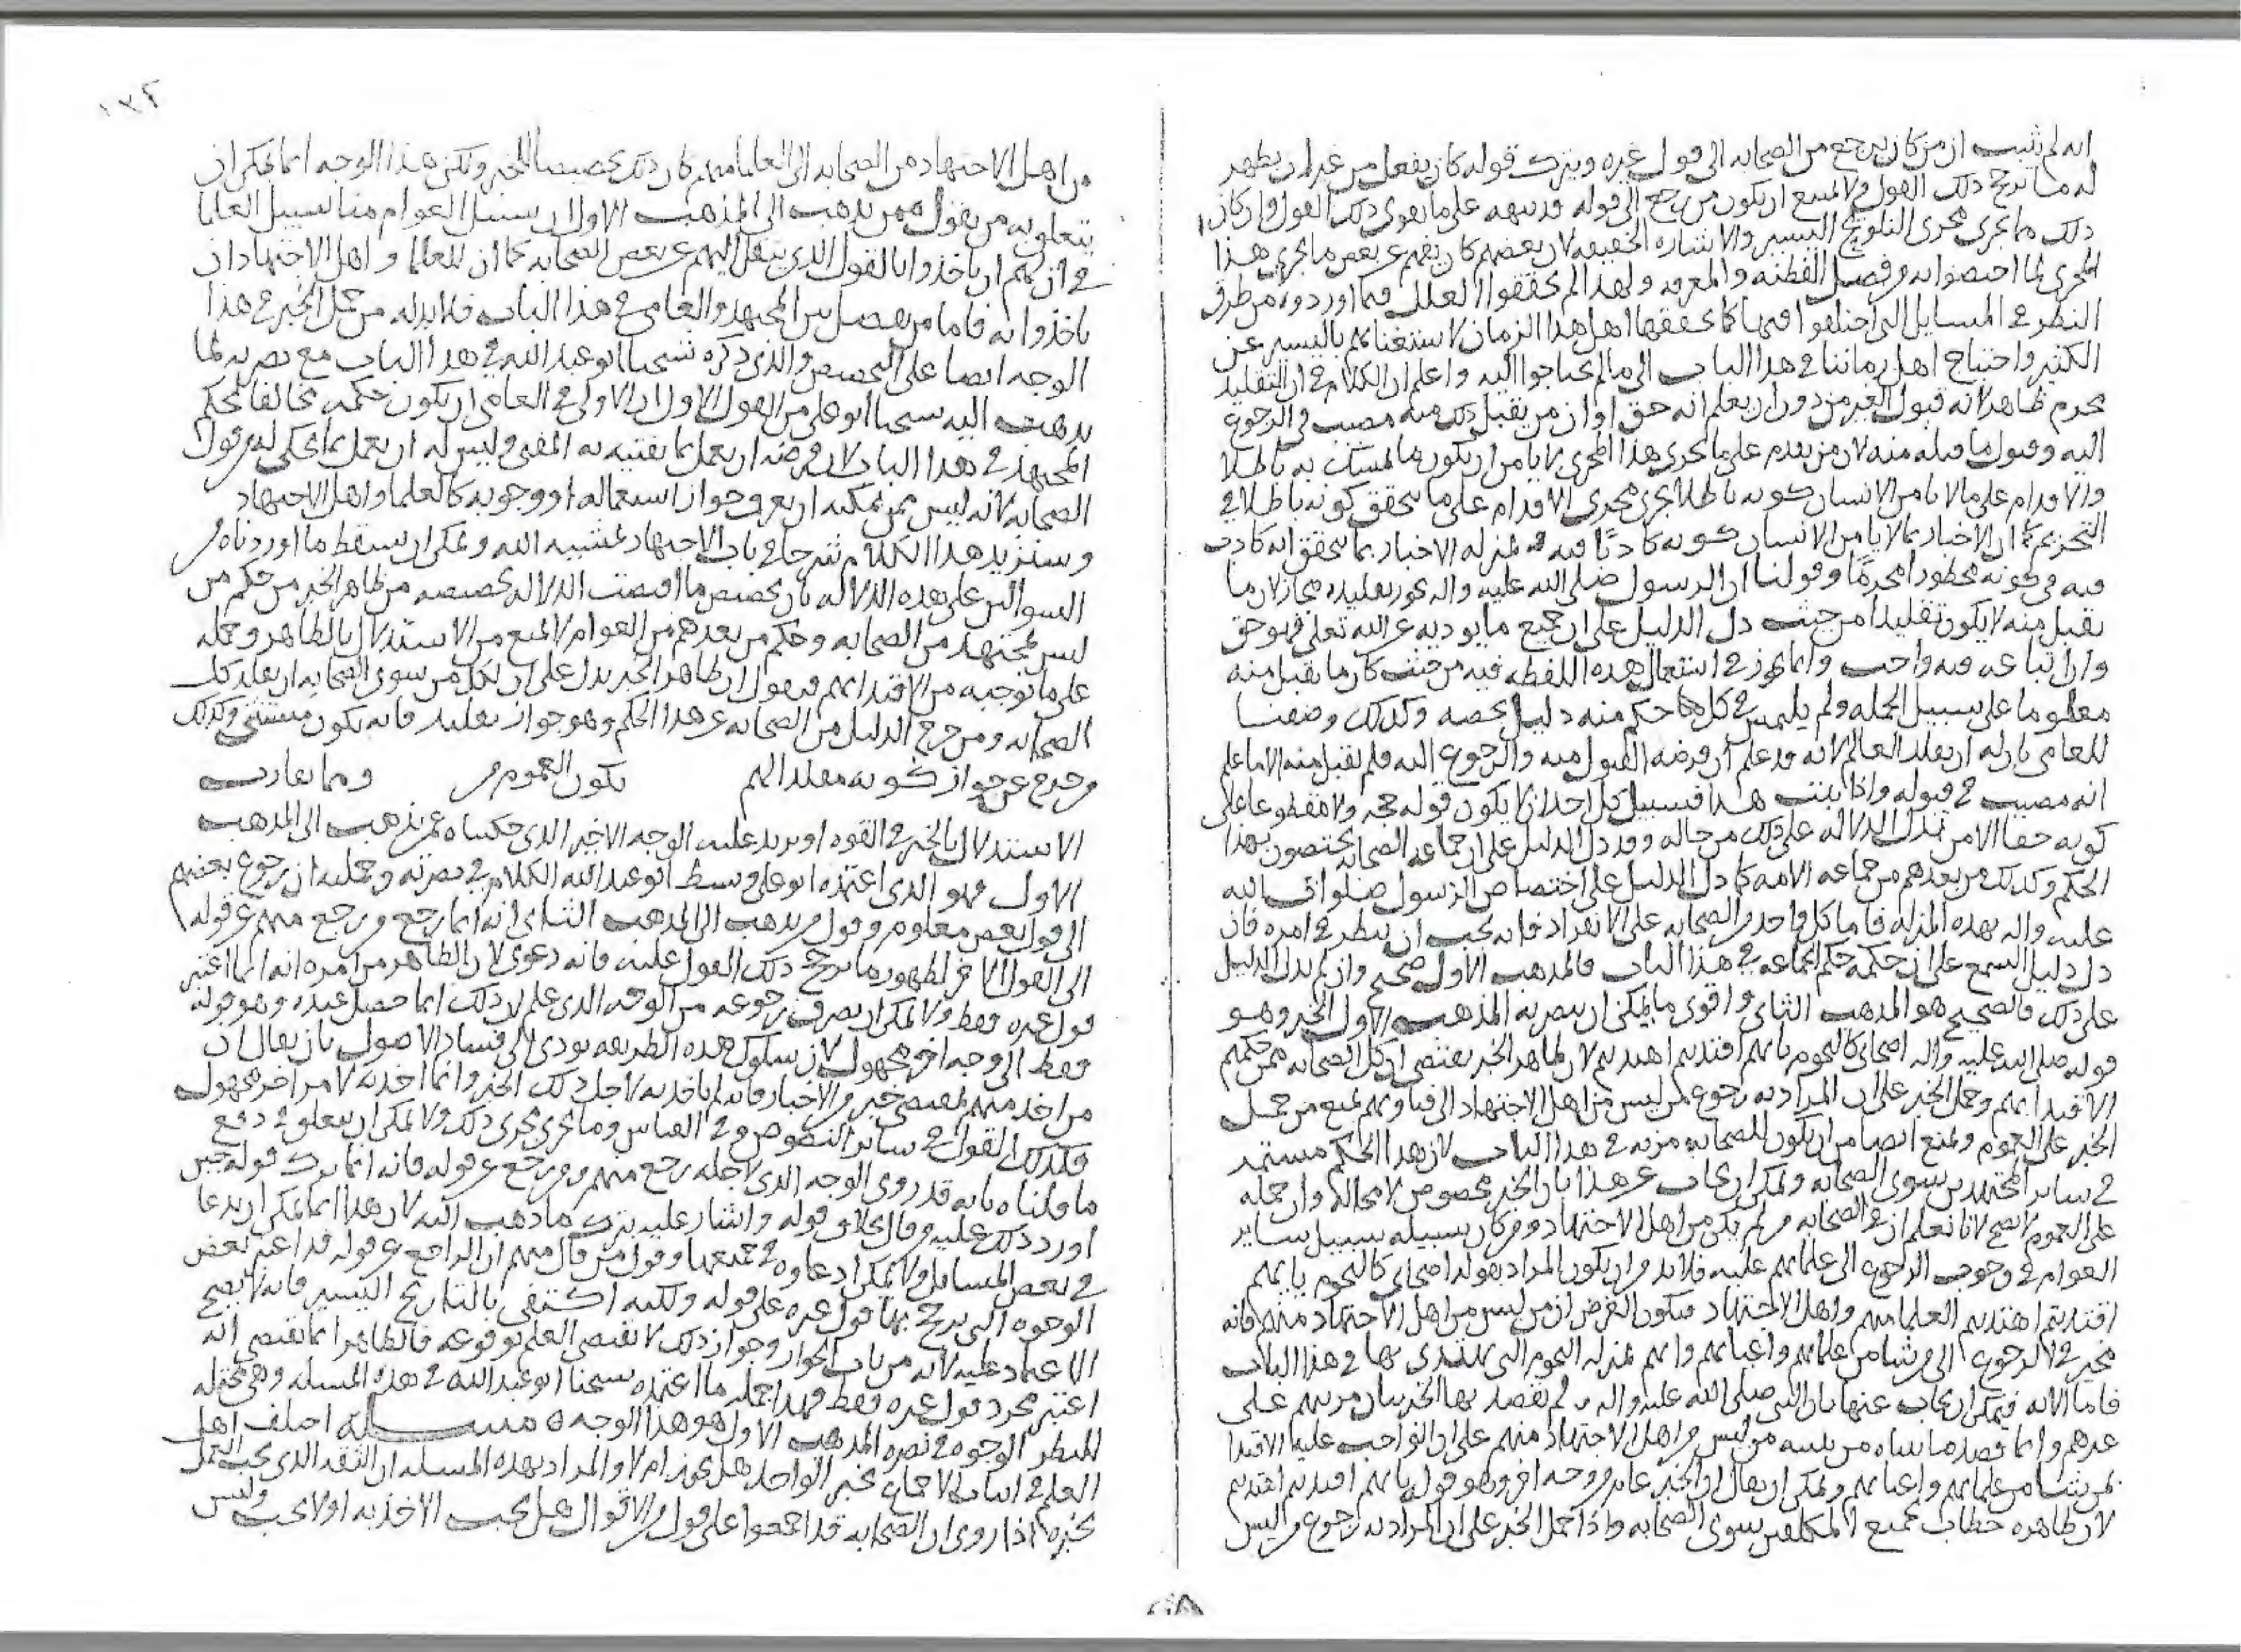 انه لم يثبت ان من كان يرجع من الصحابه الى قول غيره ويترك قوله كان يفعل من غير ان يظهر
له ما يرجح ذلك القول ولا يمتنع ان يكون من يرجع الى قوله قد نبهه على ما يقوى ذلك القول وان كان
ذلك مما يجرى مجرى التلويح اليسير والاشاره الخفيفه لان بعضهم كان يفهم عن بعض ما يجرى هذا
المجرى لما اختصوا به من فضل الفطنه والمعرفه ولهذا لم يحققوا العلل فيما اوردوه من طرق
النظر في المسايل التى اختلفوا فيها كما يحققها اهل هذا الزمان لاستغنائهم باليسير عن
الكثير واحتياج اهل زماننا في هذا الباب الى ما لم يحتاجوا اليه واعلم ان الكلام في ان التقليد
محرم ظاهر لانه قبول الغير من دون ان يعلم انه حق او ان من يقبل ذلك منه مصيب في الرجوع
اليه وقبول ما قبله منه لان من يقدم على ما يجرى هذا المجرى لا يامن ان يكون ما تمسك به باطلا
والاقدام على ما لا يامن الانسان كونه باطلا يجرى مجرى الاقدام على ما يتحقق كونه باطلا في
التحريم كما ان الاخبار بما لا يامن الانسان كونه كاذبا فيه بمنزله الاخبار بما يتحقق انه كاذب
فيه في كونه محظورا محرما وقولنا ان الرسول صلى الله عليه واله يجوز تقليده مجاز لان ما
يقبل منه لا يكون تقليدا من حيث دل الدليل على ان جميع ما يوديه عن الله تعلى فهو حق
وان اتباعه فيه واجب وانما يجوز في استعمال هذه اللفظه فيه من حيث كان ما يقبل منه
معلوما على سبيل الجمله ولم يلتمس في كل حكم منه دليل يخصه وكذلك وصفنا
للعامى بان له ان يقلد العالم لانه قد علم ان فرضه القبول منه والرجوع اليه فلم يقبل منه الا ما علم
انه مصيب في قبوله واذا ثبتت هذا فسبيل كل احد ان لا يكون قوله حجه ولا مقطوعا على
كونه حقا الا من تدل الدلاله على ذلك من حاله وقد دل الدليل على ان جماعه الصحابه يختصون بهذا
الحكم وكذلك من بعدهم من جماعه الامه كما دل الدليل على اختصاص الرسول صلوات الله
عليه واله بهذه المنزله فاما كل واحد من الصحابه على الانفراد فانه يجب ان ينظر في امره فان
دل دليل السمع على ان حكمه حكم الجماعه في هذا الباب فالمذهب الاول صحيح وان لم يدل الدليل
على ذلك فالصحيح هو المذهب الثانى واقوى ما يمكن ان ينصر به المذهب الاول الخبر وهو
قوله صلى الله عليه واله اصحابى كالنجوم بايهم اقتديتم اهتديتم لان ظاهر الخبر يقتضى ان كل الصحابه ممن حكمهم
الاقتدا بهم وحمل الخبر على ان المراد به رجوع من ليس من اهل الاجتهاد الى فتاويهم يمنع من حمل
الخبر على العموم ويمنع ايضا من ان يكون للصحابه مزيه في هذا الباب لان هذا الحكم مستمر
في ساير المجتهدين سوى الصحابه ويمكن ان يجاب عن هذا بان الخبر مخصوص لا محاله وان حمله
على العموم لا يصح لانا نعلم ان في الصحابه من لم يكن من اهل الاجتهاد ومن كان سبيله سبيل ساير
العوام في وجوب الرجوع الى علمائهم عليه فلابد من ان يكون المراد بقوله اصحابى كالنجوم بايهم
اقتديتم اهتديتم العلما منهم واهل الاجتهاد فيكون الغرض ان من ليس من اهل الاجتهاد منهم فانه
مخير في الرجوع الى من شا من علمائهم وانهم بمنزله النجوم التى يهتدى بها في هذا الباب
فاما فيمكن ان يجاب عنها بان النبى صلى الله عليه واله لم يقصد بهذا الخبر بيان مزيتهم على
غيرهم وانما قصد ما بيناه من تنبيه من ليس من اهل الاجتهاد منهم على ان الواجب عليه الاقتدا
بمن شا من علمائهم ويمكن ان يقال ان الخبر عام من وجه اخر وهو قوله بايهم اقتديتم اهتديتم
لان ظاهره خطاب لجميع المكلفين سوى الصحابه واذا حمل الخبر على ان المراد به رجوع من ليس
من اهل الاجتهاد من الصحابه الى العلما منهم كان ذلك تخصيصا للخبر ولكن هذا الوجه انما يمكن ان
يتعلق به من يقول ممن يذهب الى المذهب الاول ان سبيل العوام منا سبيل العلما
في ان لهم ان ياخذوا بالقول الذى ينقل اليهم عن بعض الصحابه كما ان للعلما واهل الاجتهاد ان
ياخذوا به فاما من يفصل بين المجتهد والعامى في هذا الباب فلابد له من حمل الخبر في هذا
الوجه ايضا على التخصيص والذى ذكره شيخنا ابو عبد الله في هذا الباب مع نصرته لما
يذهب اليه شيخنا ابو على من القول الاول ان الاولى في العامى ان يكون حكمه مخالفا لحكم
المجتهد في هذا الباب لان فرضه ان يعمل بما يفتيه به المفتى وليس له ان يعمل بما يحكى له من قول
الصحابه لانه ليس ممن يمكنه ان يعرف جواز استعماله او وجوبه كالعلما واهل الاجتهاد
وسنزيد هذا الكلام شرحا في باب الاجتهاد بمشييه الله ويمكن ان يسقط ما اوردناه من
السوالين على هذه الدلاله بان تخصيص ما اقتضت الدلاله تخصيصه من ظاهر الخبر من حكم من
ليس بمجتهد من الصحابه وحكم من بعدهم من العوام لا يمنع من الاستدلال بالظاهر وحمله
على ما توجبه من الاقتدا بهم فيقول ان ظاهر الخبر يدل على ان لكل من سوى الصحابه ان يقلد كل
الصحابه ومن خرج بالدليل من الصحابه عن هذا الحكم وهو جواز تقليده فانه يكون مستثنى وكذلك
من خرج عن جواز كونه مقلدا لهم يكون العموم من ومما يقارب
الاستدلال بالخبر في القوه او يزيد عليه الوجه الاخير الذى حكيناه عمن يذهب الى المذهب
الاول فهو الذى اعتمده ابو على وبسط ابو عبد الله الكلام في نصرته وجملته ان رجوع بعضهم
الى قول بعض معلوم وقول من يذهب الى المذهب الثانى انه انما رجع من رجع منهم عن قوله
الى القول الاخر لظهور ما يرجح ذلك القول عليه فانه دعوى لان الظاهر من امره انه انما اعتبر
قول غيره فقط ولا يمكن ان يصرف رجوعه من الوجه الذى علم لان ذلك انما حصل عنده وهو قوله
فقط الى وجه اخر مجهول لان سلوك هذه الطريقه يودى الى فساد الاصول بان يقال ان
من اخذ منهم بمقتضى خبر من الاخبار فانه لم ياخذ به لاجل ذلك الخبر وانما اخذ به لامر اخر مجهول
فكذلك القول في ساير النصوص وفي القياس وما يجرى مجرى ذلك ولا يمكن ان يتعلق في دفع
ما قلناه بانه قد روى الوجه الذى لاجله رجع منهم من رجع عن قوله فانه انما ترك قوله حين
اورد ذلك عليه وقال بخلاف قوله واشار عليه بترك ما ذهب اليه لان هذا انما يمكن ان يدعا
في بعض المسائل ولا يمكن ادعاوه في جميعها وقول من قال منهم ان الراجع عن قوله قد اعتبر بعض
الوجوه التى يرجح بها قول غيره على قوله ولكنه اكتفى بالتاريخ اليسير فانه لا يصح
الاعتماد عليه لانه من باب الجواز وجواز ذلك لا يقتضى العلم بوقوعه فالظاهر انما يقتضى انه
اعتبر مجرد قول غيره فقط فهذا جمله ما اعتمده شيخنا ابو عبد الله في هذه المسئله وهى محتمله
للنظر الوجوه في نصره المذهب الاول هو هذا الوجه ه مسئله اختلف اهل
العلم في اثبات الاجماع بخبر الواحد هل يجوز ام لا والمراد بهذه المسئله ان الثقه الذى يجب العمل
بخبره اذا روى ان الصحابه قد اجمعوا على قول من الاقوال هل يجب الاخذ به اولا يجب وليس